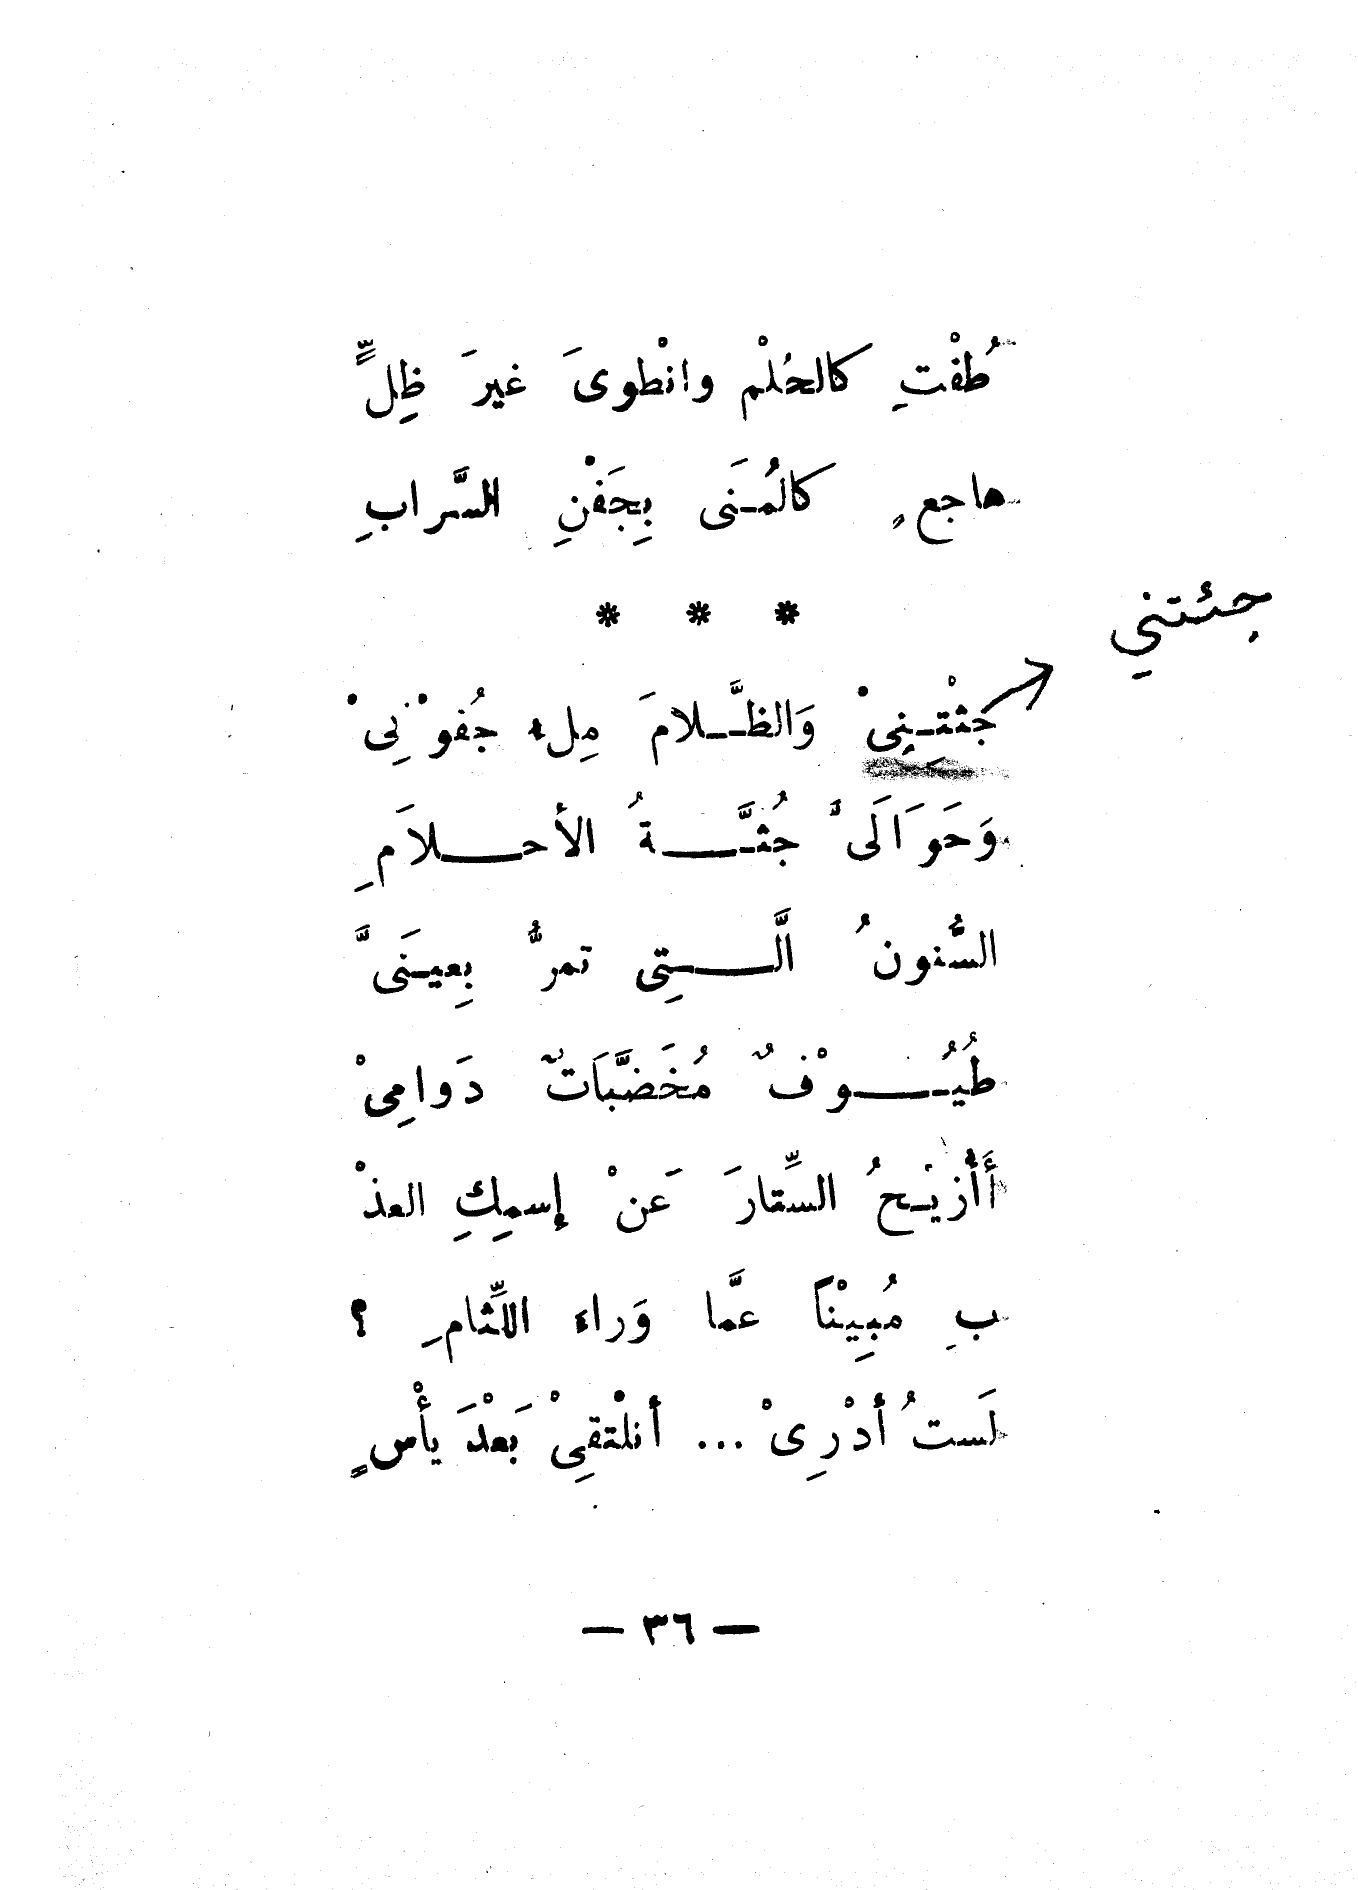 طُفْتِ كالحُلْم وانْطوىَ غيرَ ظِلٍّ
هاجعٍ كالمُـنَى بِجَفْنِ السَّرابِ
* * *
جئتني
جثْتِـنِىْ وَالظَّـلامَ مِلء جُفوْنِىْ
وَحَوَالَىَّ جُثَّـــةُ الأحــلاَمِ
السُّنونُ الَّــتِى تمرُّ بِعيـنَىَّ
طُيُــوْفٌ مُخَضَّبَاتٌ دَوامِىْ
أَأُزيْـحُ السِّتارَ عَنْ إسمِكِ العذْ
بِ مُبِيْناً عمَّا وَراء اللِّثامِ ؟
لَستُ أدْرِىْ ... أنلْتقىِْ بَعْدَ يأْسٍ
— ٣٦ —